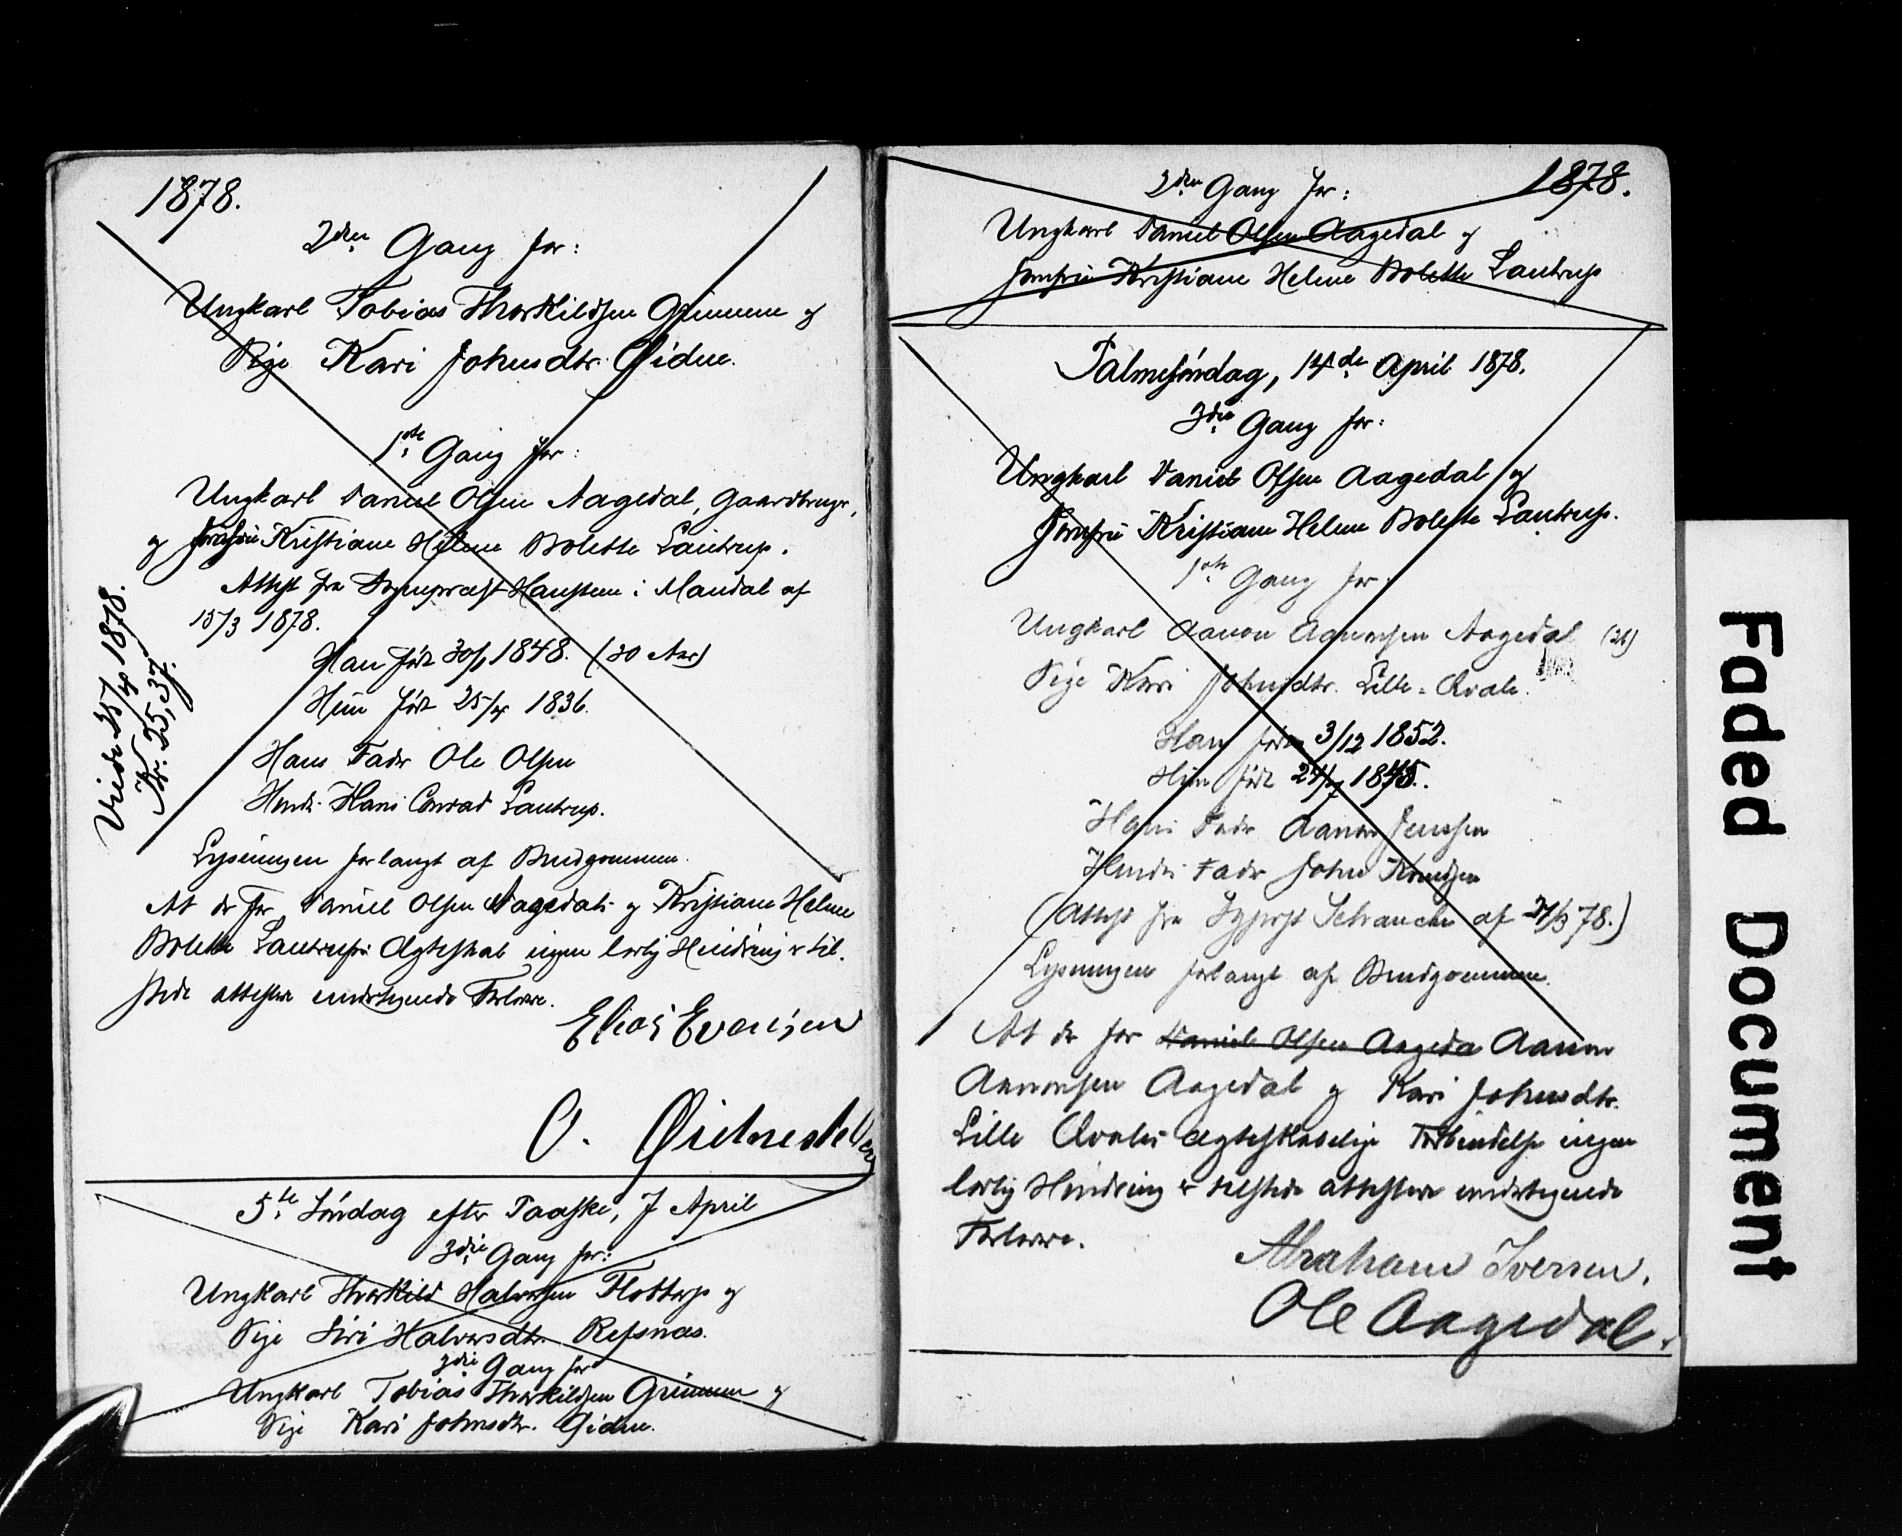 1878.
2den Gang for:
Ungkarl Tobias Thorkildsen Grimmen og
Pige Kari Johnsdtr. Øidne.
1ste Gang for:
Ungkarl Daniel Olsen Aagedal, Gaardbruger,
og Jomfru Kristiane Helene Bolette Lautrup.
Attest fra Sognepræst Hansteen i Mandal af
15/3 1878.
Han født 30/1 1848. (30 Aar)
Hun født 25/4 1836.
Hans Fader Ole Olsen
Hendes Hans Conrad Lautrup.
Lysningen forlangt af Brudgommen.
At der for Daniel Olsen Aagedals og Kristiane Helene
Bolette Lautrups Ægteskab ingen lovlig Hindring er til-
stede attestere undertegnede Forlovere.
Elias Evensen
O. Øidneshellen
Viede 25/4 1878.
Nr. 25, 37.
5te Søndag efter Paaske, 7 April
3die Gang for:
Ungkarl Thorkild Halvorsen Flottorp og
Pige Siri Halvorsdtr. Refsnæs.
3die Gang for
Ungkarl Tobias Thorkildsen Grimmen og
Pige Kari Johnsdtr. Øidne.
1878.
2den Gang for:
Ungkarl Daniel Olsen Aagedal og
Jomfru Kristiane Helene Bolette Lautrup
Palmesøndag, 14de April 1878.
3die Gang for:
Ungkarl Daniel Olsen Aagedal og
Jomfru Kristiane Helene Bolette Lautrup.
1ste Gang for:
Ungkarl Aanon Aanonsen Aagedal (26)
Pige Kari Johnsdtr. Lille-Qvale.
Han født 3/12 1852.
Hun født 24/7 1845.
Hans Fader Aanon Jensen
Hendes Fader John Knudsen
(Attest fra Sgprst Schanche af 24/3 78.)
Lysningen forlangt af Brudgommen.
At der for Daniel Olsen Aageda Aanon
Aanonsen Aagedal og Kari Johnsdtr.
Lille Qvales ægteskabelige Forbindelse ingen
lovlig Hindring er tilstede attestere undertegnede
Forlovere.
Abraham Iversen.
Ole Aagedal.
Faded Document